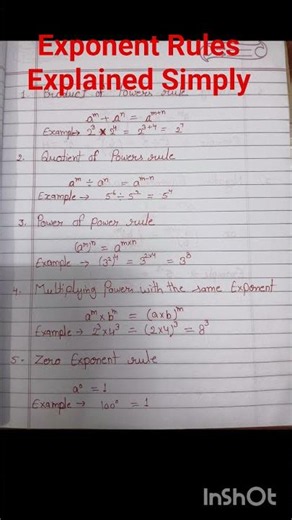 Exponent Rules
Explained Simply
1. Product of Powers rule
aᵐ + aⁿ = aᵐ⁺ⁿ
Example → 2³ × 2⁴ = 2³⁺⁴ = 2⁷
2. Quotient of Powers rule
aᵐ ÷ aⁿ = aᵐ⁻ⁿ
Example → 5⁶ ÷ 5² = 5⁴
3. Power of power rule
(aᵐ)ⁿ = aᵐˣⁿ
Example → (3²)⁴ = 3²ˣ⁴ = 3⁸
4. Multiplying Powers with the same Exponent
aᵐ × bᵐ = (a×b)ᵐ
Example → 2³ × 4³ = (2×4)³ = 8³
5- Zero Exponent rule
a⁰ = 1
Example → 100⁰ = 1
InShOt